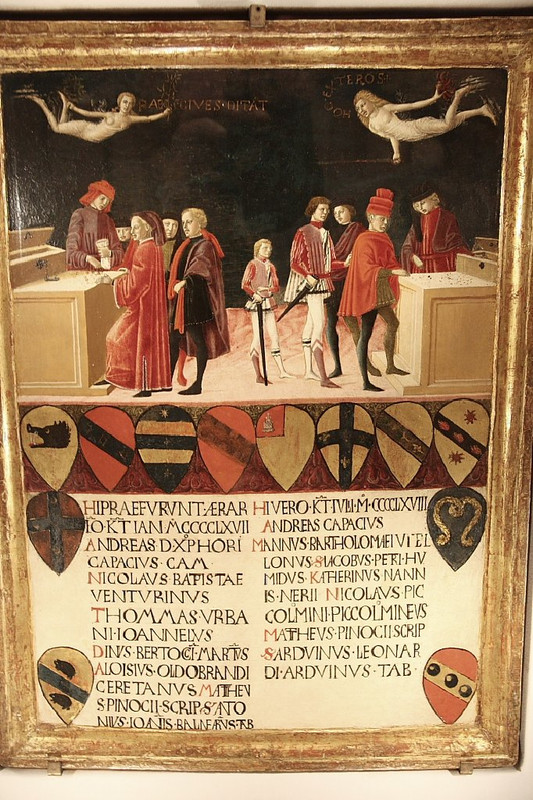 CIVES·DITAT
EXTEROS
HI PRAEFVRVNT ÆRAR
IO·KT·IAN·M·CCCCLXVII
ANDREAS·DXPHORI
CAPACIVS·CAM·
NICOLAVS·BATISTAE
VENTVRINVS
THOMMAS·VRBA
NI·IOANNELVS
DINVS·BERTOCCI·MARTVS
ALOISIVS·OLDOBRANDI
CERETANVS·MATHEV
S PINOCII·SCRIP·SATO
NIVS·IOANIS·BALNEANVS·TAB
HI VERO·KT·IVLII·M·CCCCLXVIII
ANDREAS CAPACIVS
MANNVS·BARTHOLOMEI VITEL
LONVS·S·IACOBVS·PETRI·HV
MIDVS·KATHERINVS NANN
IS·NERII NICOLAVS·PIC
COLMINI·PICCOLMINEVS
MATHEVS·PINOCII SCRIP
·SARDVINVS·LEONAR
DI·ARDVINVS·TAB·